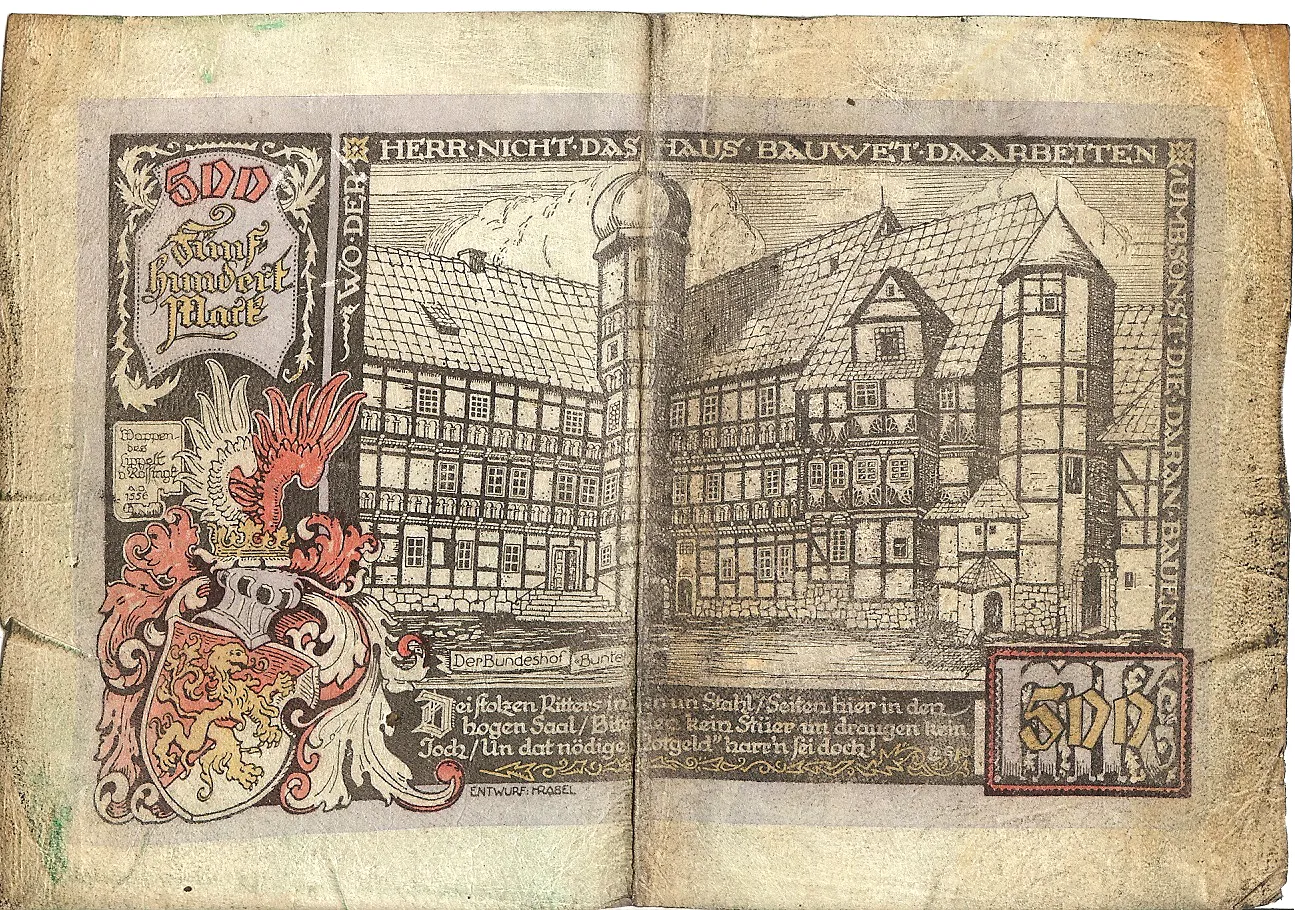 500
Fünf
hundert
Mark
WO·DER
HERR·NICHT·DAS HAUS·BAUWET·DA·ARBEITEN
UMBSONST·DIE·DARAN·BAUEN
Wappen
des
1556
Der Bundeshof Bunte
Dei stolzen Ritters in un Stahl/Seiten hier in den
hogen Saal/ kein Stüer un draugen kein
Joch/Un dat nödige Notgeld" harr'n sei doch!
500
ENTWURF: HRABEL